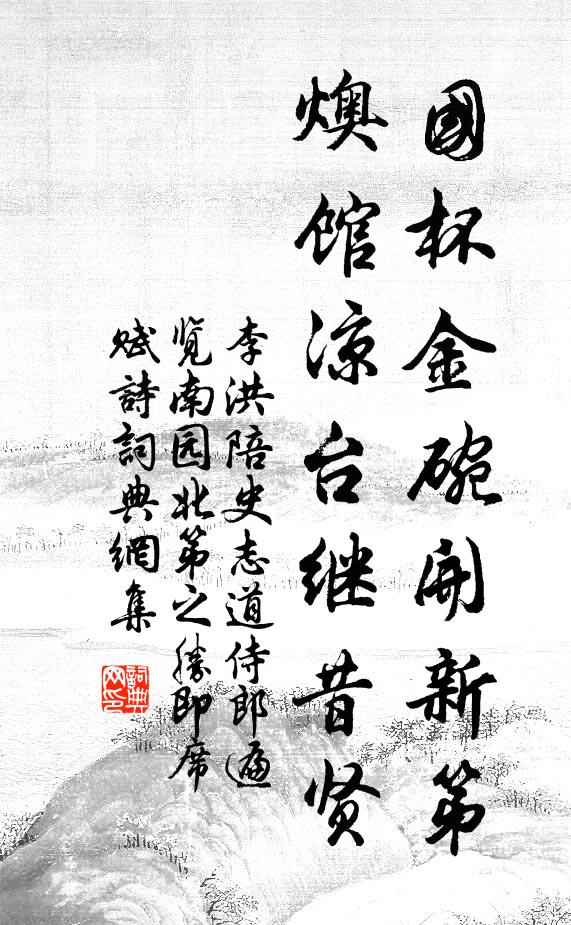 國杯金碗開新第
燠馆凉台继昔贤
李洪陪史志道侍郎遍
览南园北第之勝即席
赋詩詞典網集
詞典网印